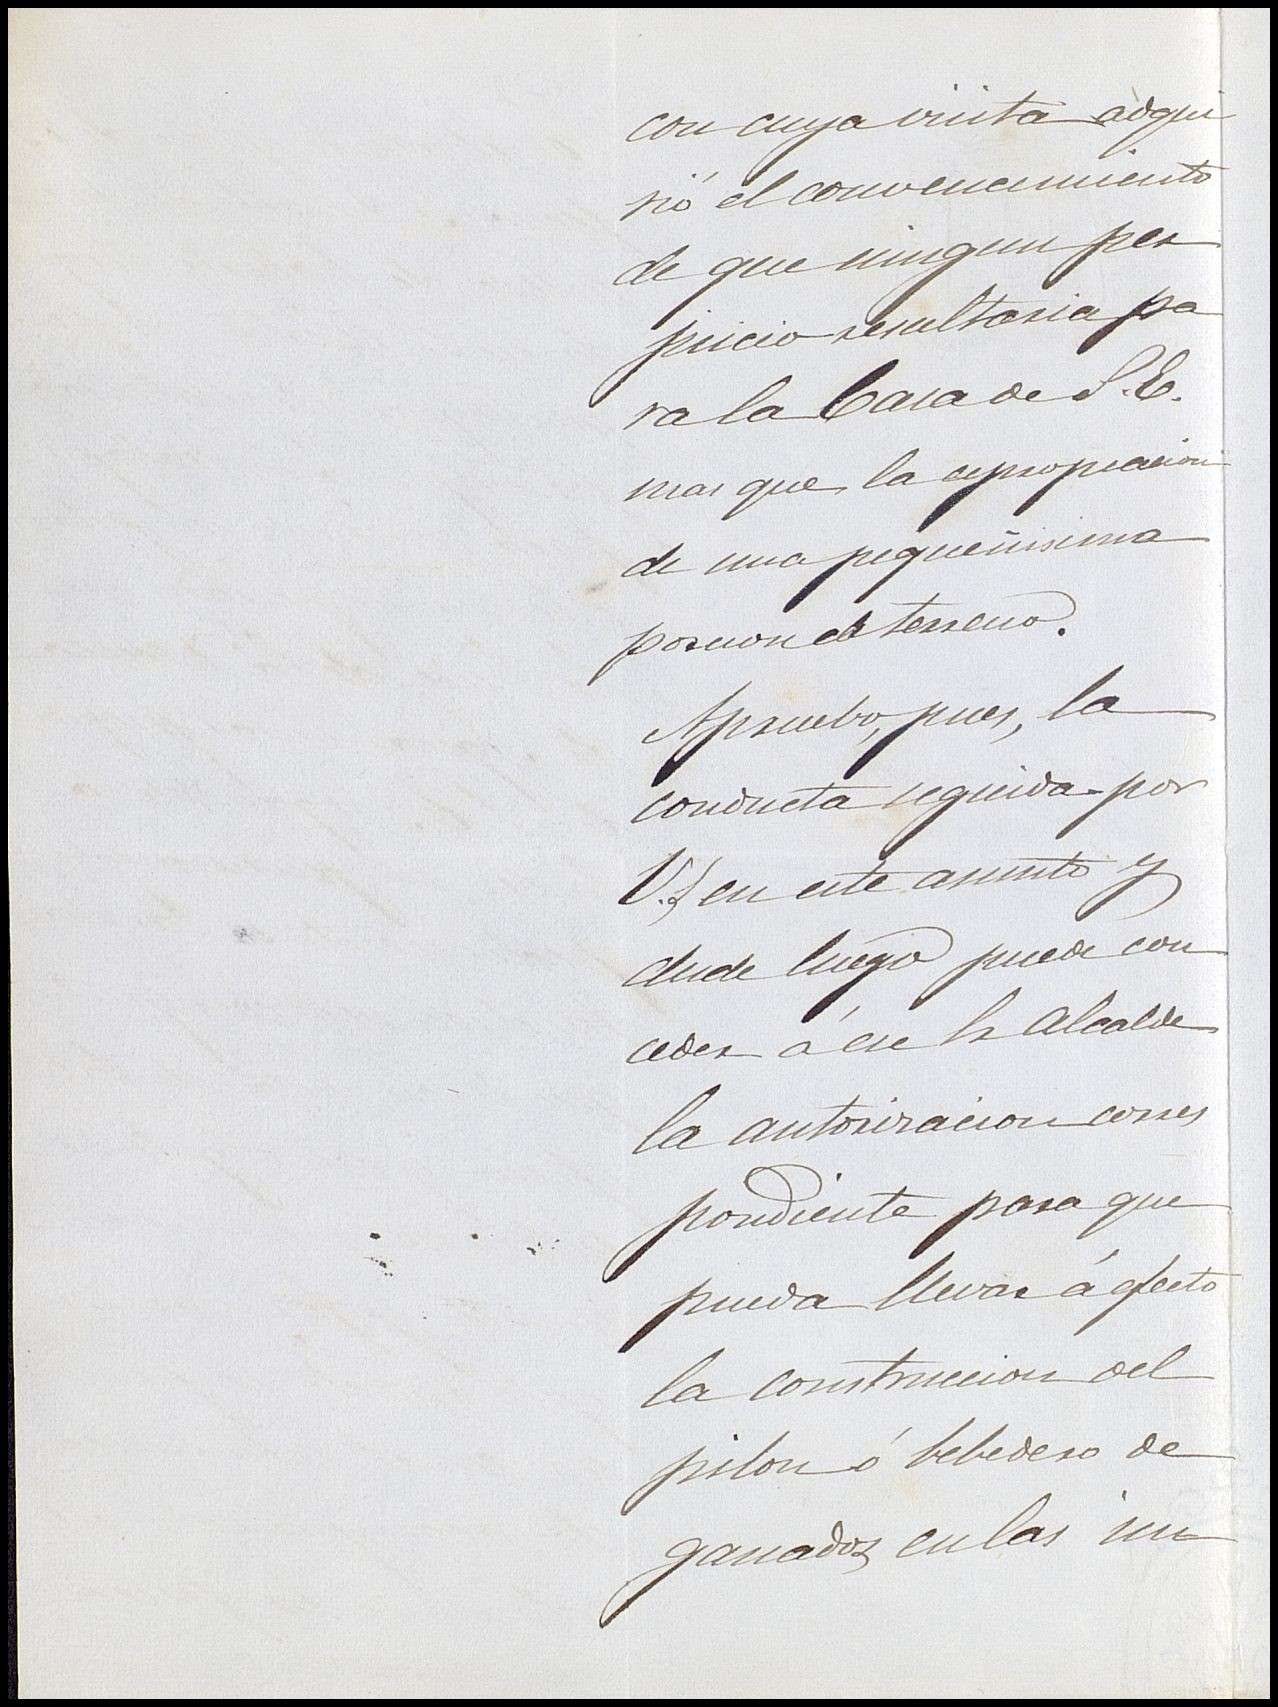 con cuya visita adqui
rió el convencimiento
de que ningun per
juicio resultaria pa
ra la Casa de S.E.
mas que la apropiacion
de una pequeñisima
porcion de terreno.
Apruebo, pues, la
conducta seguida por
V. en este asunto y
desde luego puede con
ceder á ese Sr Alcalde
la autorizacion corres
pondiente para que
pueda llevar á efecto
la construccion del
pilon ó bebedero de
ganados en las in